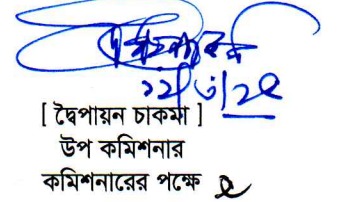 ১২/৩/২৫
[ দ্বৈপায়ন চাকমা ]
উপ কমিশনার
কমিশনারের পক্ষে